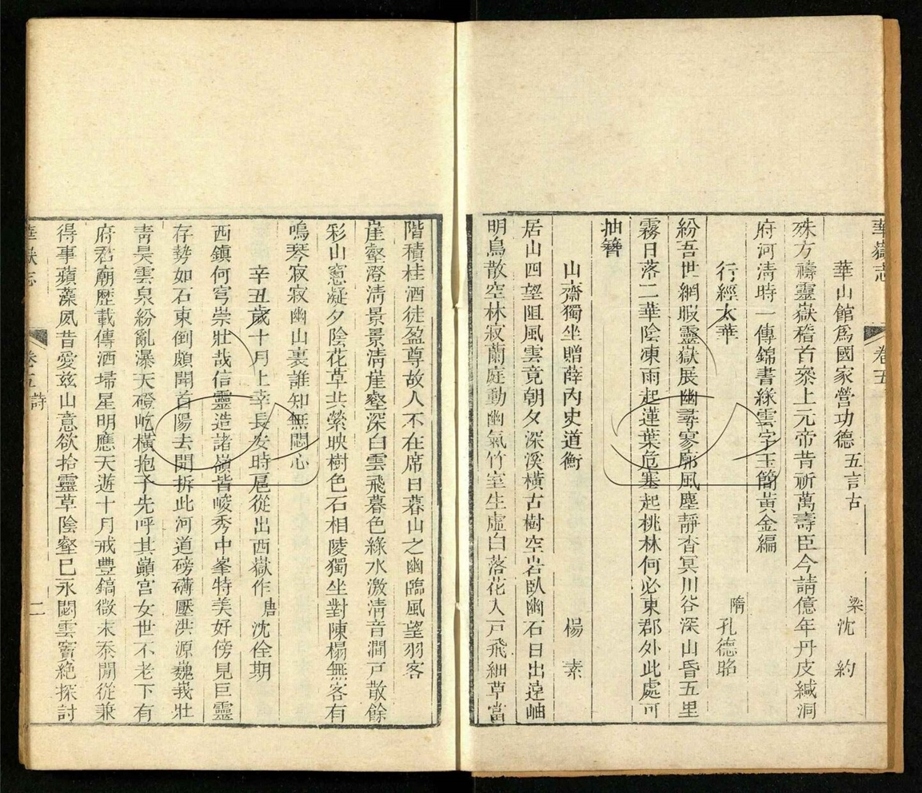 華嶽志 卷五
華山館爲國家營功德 五言古 梁 沈約
殊方禱靈嶽稽首衆上元帝昔祈萬壽臣今請億年丹皮緘洞
府河清時一傳錦書綠雲字玉簡黃金編
行經太華 隋 孔德昭
紛吾世網暇靈嶽展幽尋寥廓風塵靜杳冥川谷深山昏五里
霧日落二華陰凍雨起蓮葉危塞起桃林何必東郡外此處可
抽簪
山齋獨坐贈薛內史道衡 楊素
居山四望阻風雲竟朝夕深溪橫古樹空岩臥幽石日出遠岫
明鳥散空林寂蘭庭動幽氣竹室生虛白落花入戶飛細草當
階積桂酒徒盈尊故人不在席日暮山之幽臨風望羽客
崖壑澄清景景清崖壑深白雲飛暮色綠水激清音澗戶散餘
彩山窻凝夕陰花草共縈映樹色石相陵獨坐對陳榻無客有
鳴琴寂寂幽山裏誰知無悶心
辛丑歲十月上幸長安時扈從出西嶽作 唐 沈佺期
西鎮何穹崇壯哉信靈造諸嶺皆峻秀中峯特美好傍見巨靈
存勢如石東倒頗聞首陽去開拆此河道磅礴壓洪源巍峩壯
靑昊雲泉紛亂瀑天磴屹橫抱子先呼其巔宮女世不老下有
府君廟歷載傳洒埽星明應天遊十月戒豐鎬微末忝閒從兼
得事蘋藻夙昔愛茲山意欲拾靈草陰壑已永閟雲竇絶探討
華嶽志 卷五 詩 二